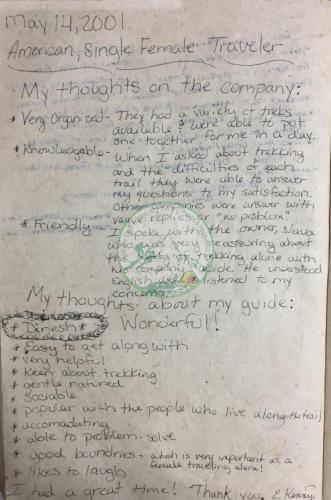 May 14, 2001
American, Single Female Traveler
My thoughts on the company:
* Very Organized - They had a variety of treks
available & were able to put
one together for me in a day.
* Knowledgable - When I asked about trekking
and the difficulties of each
trail they were able to answer
my questions to my satisfaction.
Other companies were answer with
vague replies or "no problem"
* Friendly - I spoke with the owner,
who was very assuring about
the safety of trekking alone with
his company guide. He understood
English and listened to my
concerns.
My thoughts about my guide:
* Dinesh * Wonderful!
* Easy to get along with
* very helpful
* keen about trekking
* gentle natured
* sociable
* popular with the people who live along the trail
* accomadating
* able to problem-solve
* good boundries - which is very important as a
female traveling alone!
* likes to laugh
I had a great time! Thank you,